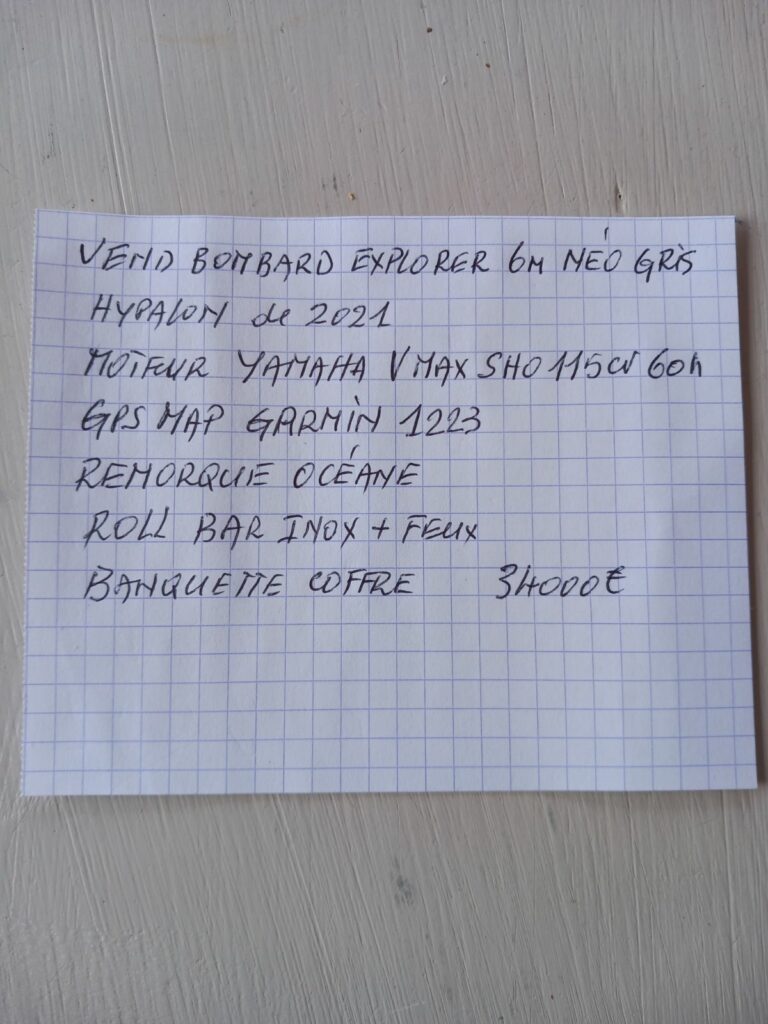 VEND BOMBARD EXPLORER 6M NÉO GRIS
HYPALON de 2021
MOTEUR YAMAHA VMAX SHO 115CV 60h
GPS MAP GARMIN 1223
REMORQUE OCÉANE
ROLL BAR INOX + FEUX
BANQUETTE COFFRE 34000€